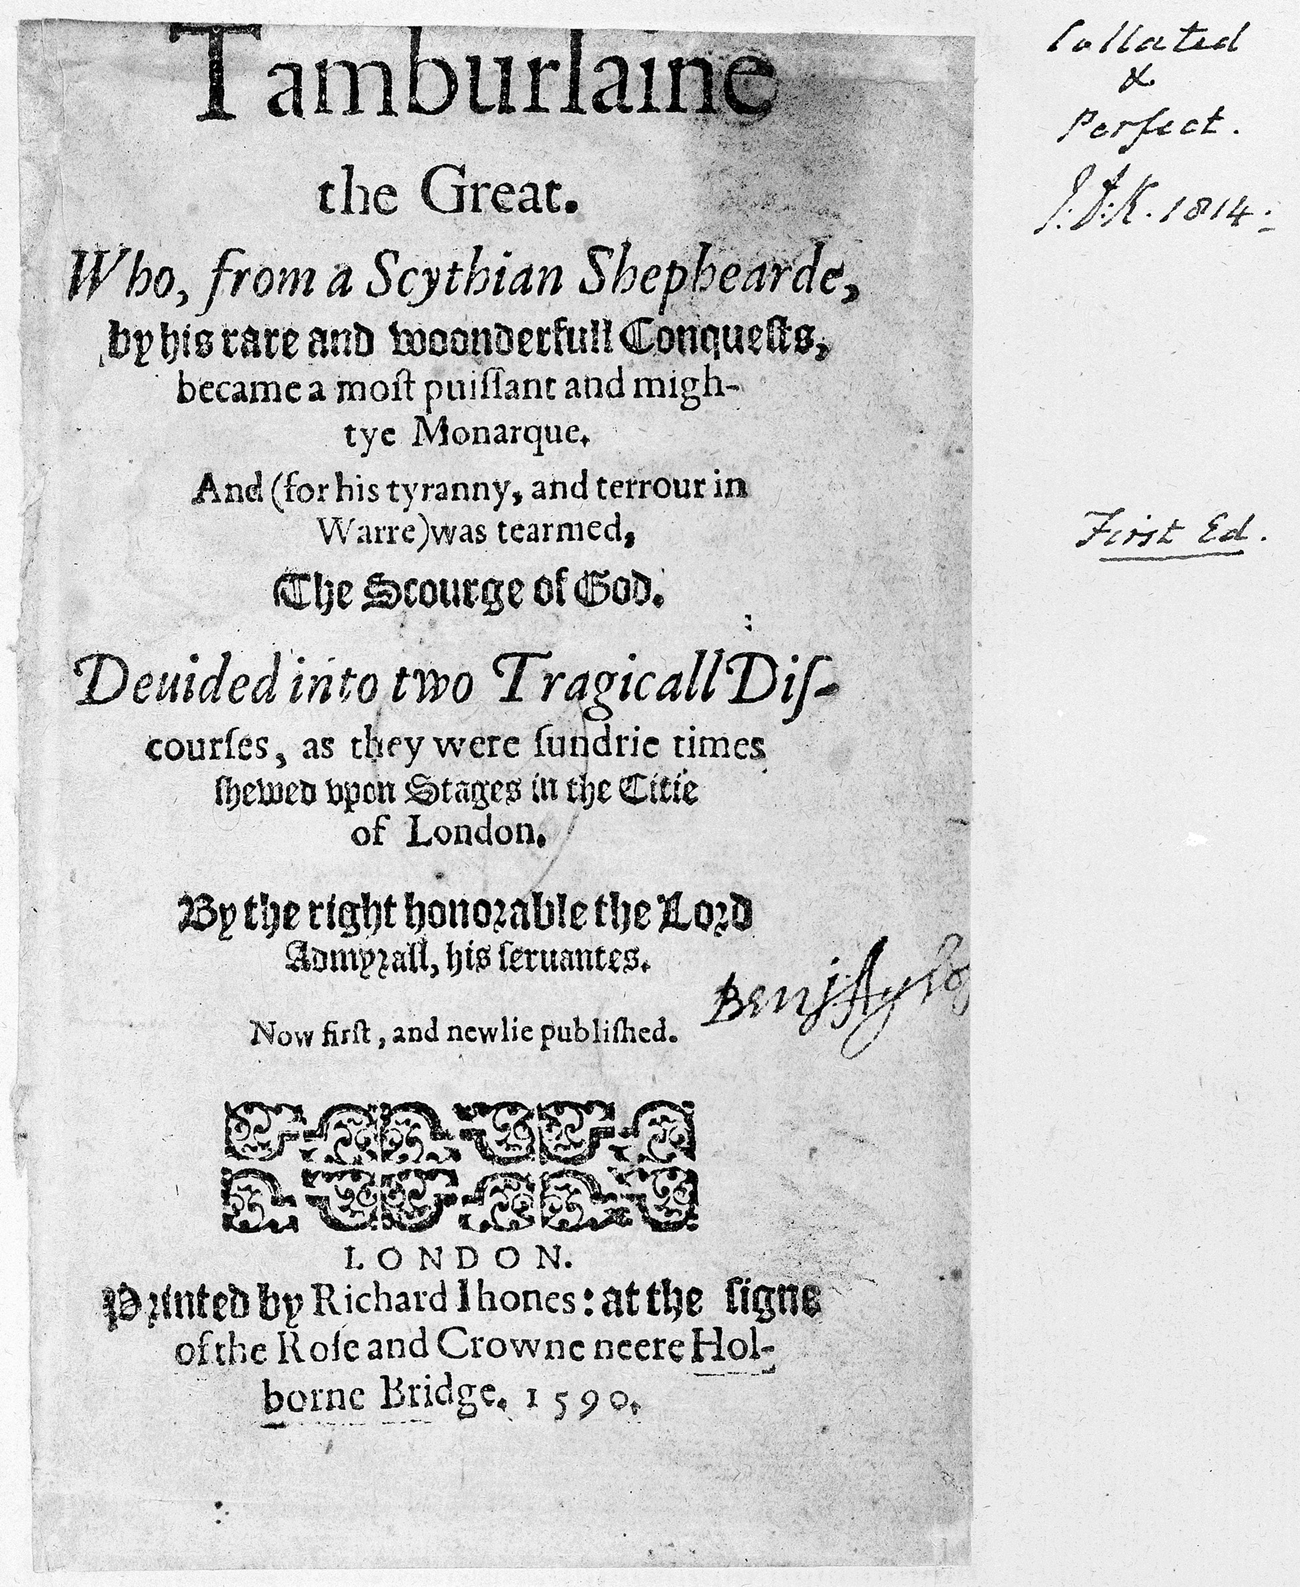 Tamburlaine
the Great.
Who, from a Scythian Shephearde,
by his rare and woonderfull Conquests,
became a most puissant and migh-
tye Monarque.
And (for his tyranny, and terrour in
Warre) was tearmed,
The Scourge of God.
Deuided into two Tragicall Dis-
courses, as they were sundrie times
shewed vpon Stages in the Citie
of London.
By the right honorable the Lord
Admyrall, his seruantes.
Now first, and newlie published.
LONDON.
Printed by Richard Ihones: at the signe
of the Rose and Crowne neere Hol-
borne Bridge. 1590.
Collated
&
Perfect.
J.P.K. 1814.
First Ed.